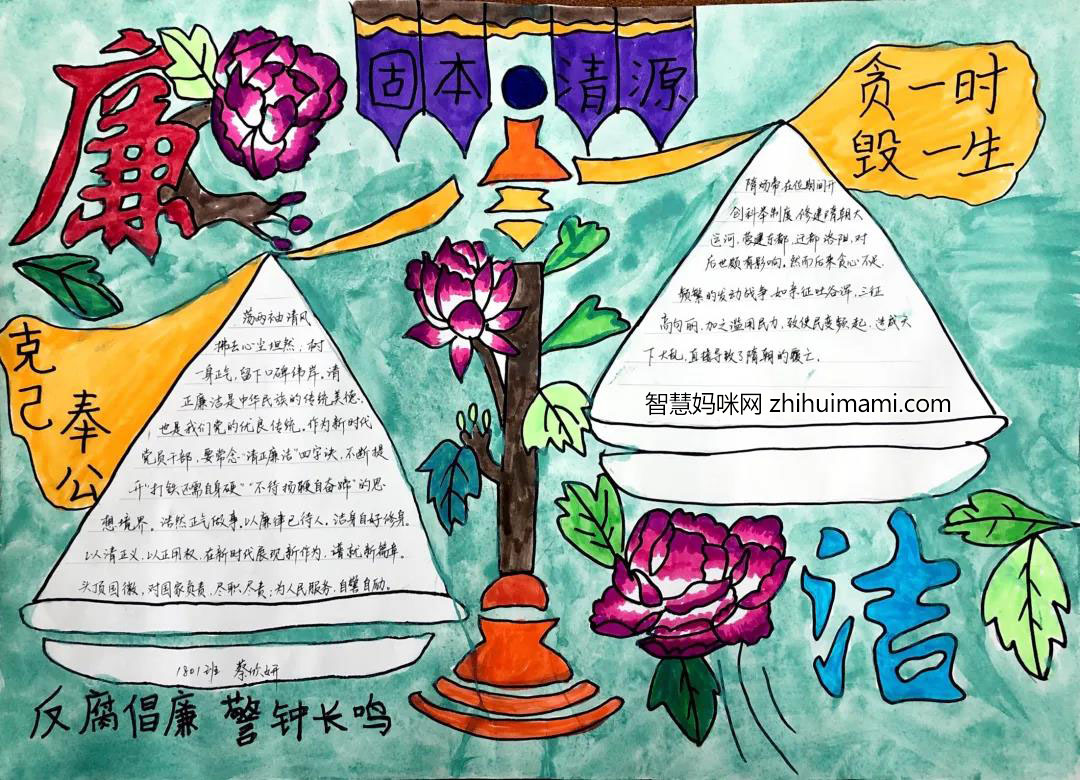 廉
固本清源
贪一时
毁一生
克己
奉公
荡两袖清风
拂去心尘坦然，树
一身正气，留下口碑伟岸。清
正廉洁是中华民族的传统美德.
也是我们党的优良传统。作为新时代
党员干部，要常念“清正廉洁”四字诀，不断提
升“打铁还需自身硬”“不待扬鞭自奋蹄”的思
想境界。浩然正气做事。以廉律己待人，洁身自好修身。
以清正义，以正用权，在新时代展现新作为，谱就新篇章。
头顶国徽，对国家负责，尽职尽责，为人民服务，自警自励。
1801班 蔡欣妍
隋炀帝，在位期间开
创科举制度，修建隋朝大
运河，营建东都，迁都洛阳，对
后世颇有影响。然而后来贪心不足.
频繁的发动战争，如亲征吐谷浑，三征
高句丽，加之滥用民力，致使民变频起，造成天
下大乱，直接导致了隋朝的覆亡.
智慧妈咪网 zhihuimami.com
洁
反腐倡廉 警钟长鸣